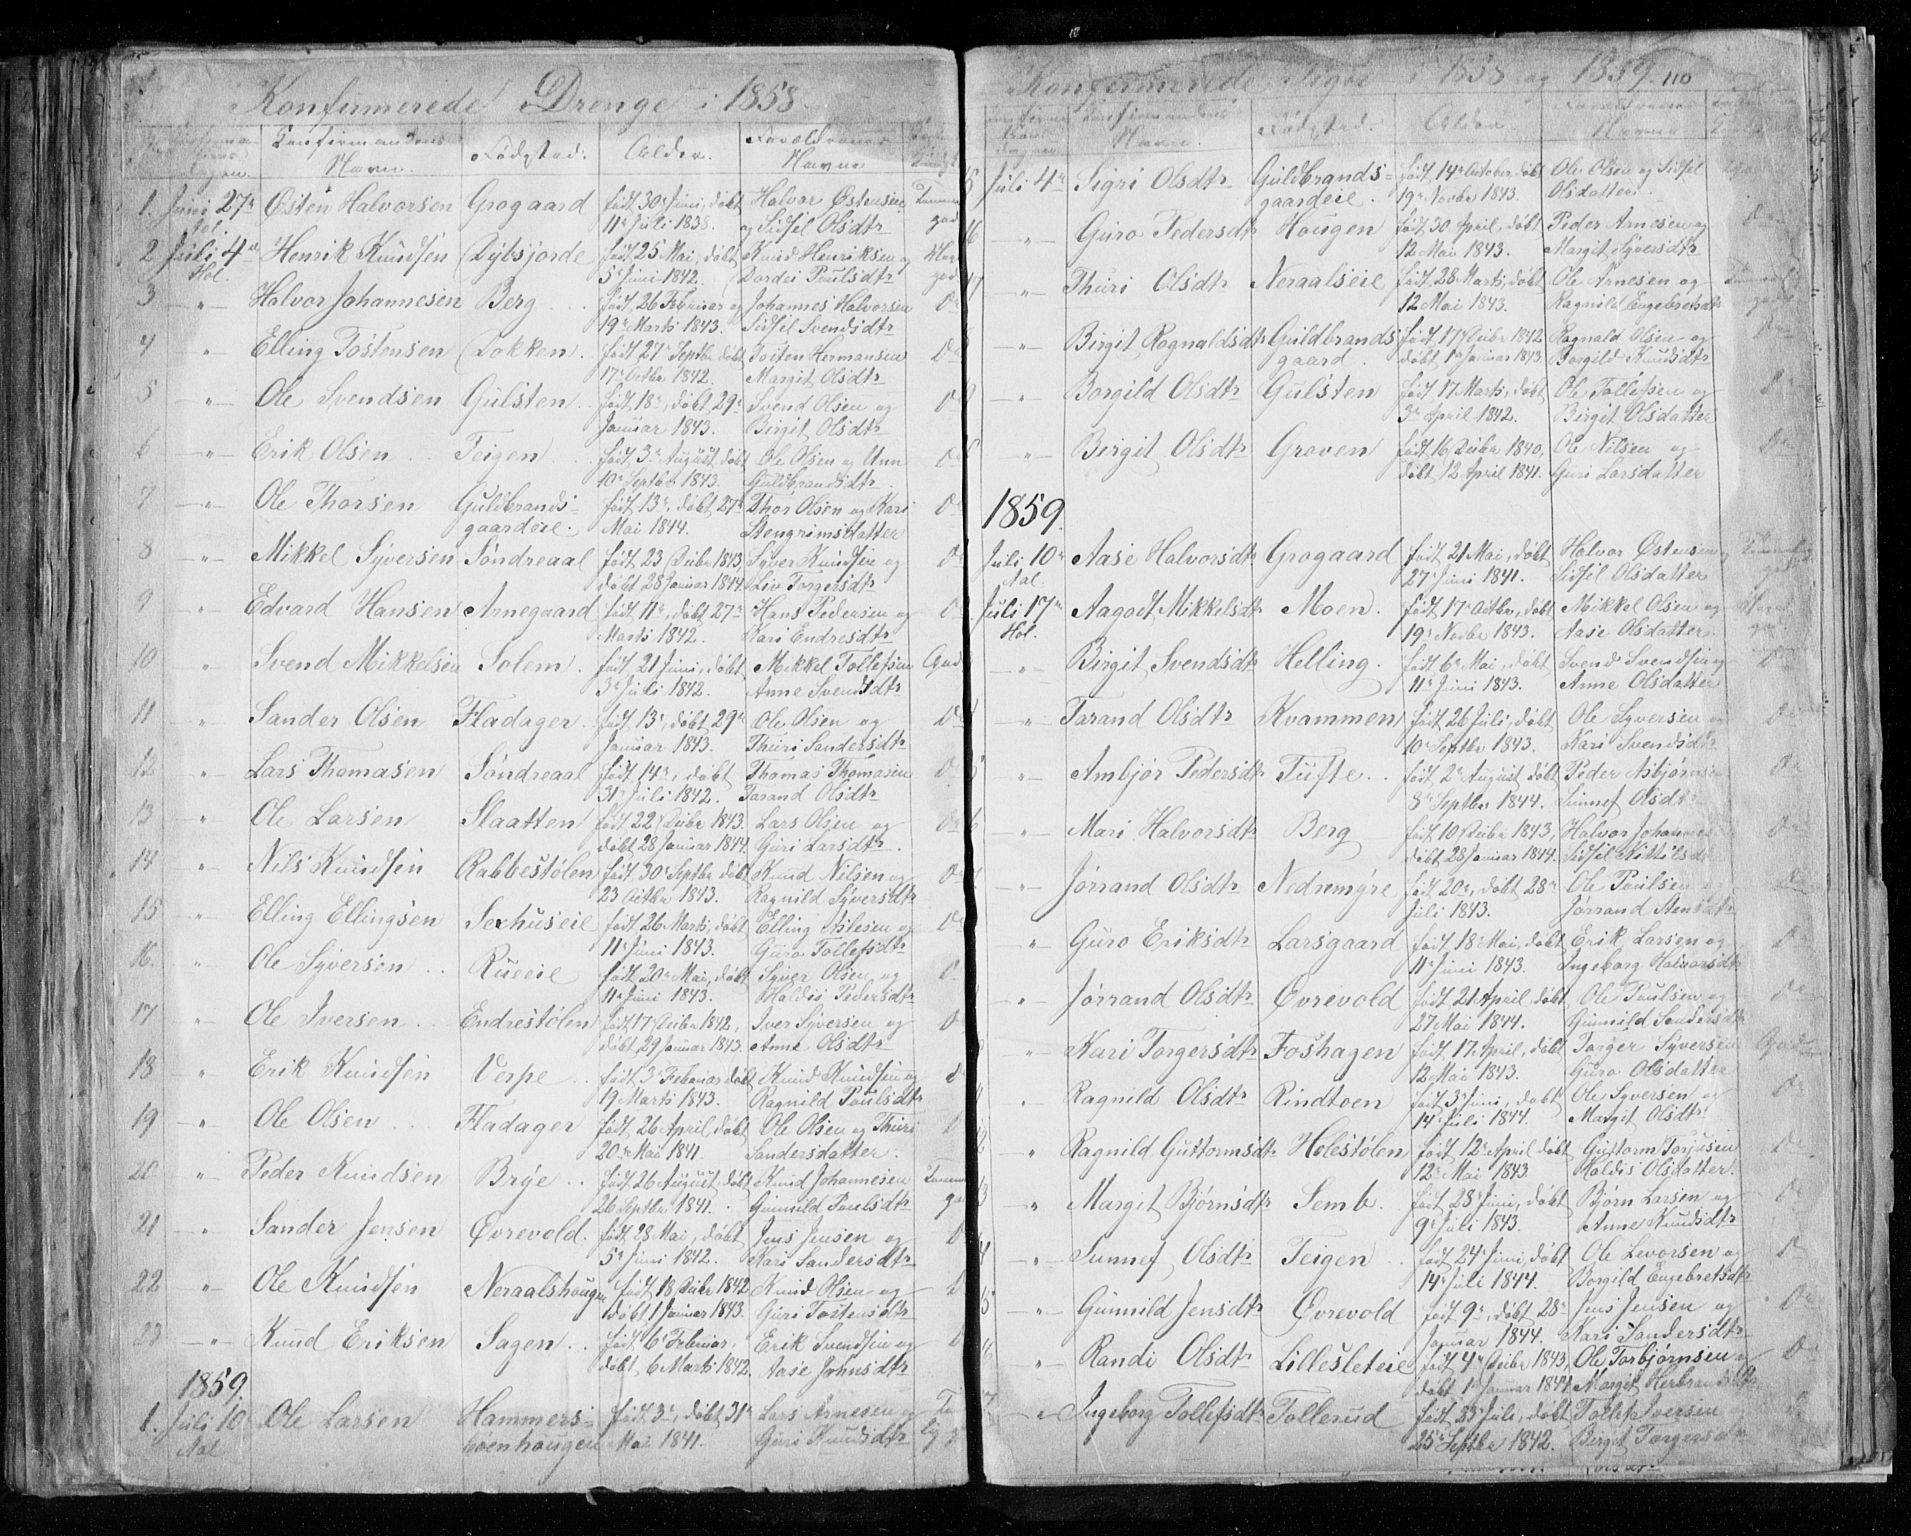 Konfirmerede Drenge i 1858.
Konfirmandens Navn. Fødested. Alder. Forældrenes Navne
1. Juni 27de Aal. Østen Halvorsen Grogaard født 30te Juni, døbt Halvor Østensen
11te Juli 1838. og Sidsel Olsdtr
2 Juli 4de Henrik Knudsen Dybsjorde født 25 Mai, døbt Knud Henriksen og
Hol. 5te Juni 1842. Dordei Paulsdtr
3 -"- Halvor Johannesen Berg født 26 Februar og Johannes Halvorsen Do
19de Marts 1843. Sidsil Svendsdtr
4 -"- Elling Tostensen Løkken. født 27de Septbr døbt Tosten Hermansen Do
17de Octbr 1842. Margit Olsdtr
5 -"- Ole Svendsen Gulsten født 18de, døbt 29de Svend Olsen og Do
Januar 1843. Birgit Olsdtr
6 -"- Erik Olsen Teigen født 3de August, døbt Ole Olsen og Unn Do
10de Septbr 1843. Guldbrandsdtr
7 -"- Ole Thorsen Guldbrands- født 13de, døbt 27de Thor Olsen og Kari Do
gaardeie. Mai 1844. Stengrimsdatter
8 -"- Mikkel Syversen Søndreaal født 23 Decbr 1843, Syver Knudsen og Do
døbt 28 Januar 1844. Liv Torgersdtr
9 -"- Edvard Hansen Arnegaard født 11te, døbt 27de Hans Pedersen og Do
Marts 1842. Kari Endresdtr
10 " Svend Mikkelsen Solem. født 21 Juni, døbt Mikkel Tollefsen God
3de Juli 1842. Anne Svendsdtr
11 -"- Sander Olsen Fladager. født 13de, døbt 29de Ole Olsen og Do
Januar 1843. Thuri Sandersdtr
12 " Lars Thomasen Søndreaal født 14de, døbt Thomas Thomasen Do
31te Juli 1842. Tarand Olsdtr
13 " Ole Larsen Slaatten født 22 Decbr 1843. Lars Olsen og Do
døbt 28 Januar 1844. Guri Larsdtr.
14 " Nils Knudsen Rabbestølen født 30te Septbr døbt Knud Nilsen og Do
23 Octbr 1843. Ragnild Syversdtr
15 " Elling Ellingsen Sexhuseie født 26 Marts, døbt Elling Aslesen og Do
11te Juni 1843. Guro Tollefsdtr
16. " Ole Syversen Rueeie født 20de Mai, døbt Syver Olsen og Do
11te Juni 1843. Haldis Pedersdtr
17 " Ole Iversen Endrestølen født 17 Decbr 1842, Iver Syversen og Do
døbt 29 Januar 1843. Anne Olsdtr
18 " Erik Knudsen Verpe født 3de Februar døbt Knud Knudsen og Do
19 Marts 1843. Ragnild Paulsdtr
19 -"- Ole Olsen Fladager født 26 April, døbt Ole Olsen og Thuri
20de Mai 1841. Sandersdatter.
20 " Peder Knudsen Brye født 26 August, døbt Knud Johannesen
26 Septbr 1841. Gunnild Paulsdtr
21 " Sander Jensen Øvrevold. født 28 Mai, døbt Jens Jensen og
5te Juni 1842. Kari Sandersdtr
22 " Ole Knudsen Neraalshaugen født 18 Decbr 1842 Knud Olsen og
døbt 1 Januar 1843. Guri Tostensdtr
23 -"- Knud Eriksen Sagen født 6te Februar, Erik Svendsen og
døbt 6 Marts 1842. Aase Johnsdtr
1859.
1. Juli 10de Ole Larsen Hammers- født 3de, døbt 31te Lars Arnesen og
Aal høenhaugen Mai 1841. Guri Knudsdtr
Konfirmerede Piger i 1858 og 1859. 110
Konfirmandens Navn. Fødested. Alder Forældrenes Navne
Juli 4de Sigri Olsdtr Guldbrands- født 14de October døbt Ole Olsen og Sidsel
gaardeie. 19de Novbr 1843. Olsdatter.
-"- Guro Pedersdtr Haugen født 30 April, døbt Peder Arnesen og Do
12 Mai 1843. Margit Syversdtr
-"- Thuri Olsdtr Neraalseie født 28 Marts, døbt Ole Arnesen og
12 Mai 1843. Ragnild Engebretsdtr
-"- Birgit Ragnaldsdtr Guldbrands født 17de Decbr 1842 Ragnald Olsen og Do
gaard. døbt 1te Januar 1843 Borgild Knudsdtr
-"- Borgild Olsdtr Gulsten født 17 Marts, døbt Ole Tollefsen og Do
3de April 1842. Birgit Olsdatter
-"- Bergit Olsdtr Groven født 16 Decbr 1840, Ole Nilsen og Do
døbt 12 April 1841. Guri Larsdatter
1859.
Juli 10de Aase Halvorsdtr Grogaard født 21 Mai, døbt Halvor Østensen
Aal. 27de Juni 1841. Sidsil Olsdatter
Juli 17de Aagodt Mikkelsdtr Moen. født 17de Octbr, døbt Mikkel Olsen og
Hol. 19de Novbr 1843. Aase Olsdatter
-"- Birgit Svendsdtr Helling. født 6te Mai, døbt Svend Svendsen og Do
11te Juni 1843. Anne Olsdatter
-"- Tarand Olsdtr Kvammen født 26 Juli, døbt Ole Syversen og Do
10de Septbr 1843. Kari Svendsdtr
-"- Ambjør Pedersdtr Tufte født 2de August døbt Peder Asbjørnsen Do
3de Septbr 1844. Sunnef Olsdtr
-"- Mari Halvorsdtr Berg født 10 Decbr 1843, Halvor Johannesen Do
døbt 28 Januar 1844. Sidsil Kittilsdtr
-"- Jørrand Olsdtr Nedremyre født 20de, døbt 28de Ole Paulsen og Do
Juli 1843. Jørrand Stensdtr
-"- Guro Eriksdtr Larsgaard født 18 Mai, døbt Erik Larsen og Do
11te Juni 1843. Ingeborg Halvorsdtr
-"- Jørrand Olsdtr Øvrevold født 21 April, døbt Ole Paulsen og Do
27 Mai 1844. Gunnild Sandersdtr
" Kari Torgersdtr Foshagen født 17 April, døbt Torger Syversen God
12 Mai 1843. Guro Olsdatter
" Ragnild Olsdtr Rindtoen født 3de Juni, døbt Ole Syversen og Do
14de Juli 1844. Margit Olsdtr
" Ragnild Guttormsdtr Holestølen født 12te April døbt Guttorm Torjusen Do
12te Mai 1843. Haldis Olsdatter.
" Margit Bjørnsdtr Semb. født 28de Juni, døbt Bjørn Larsen og Do
9de Juli 1843. Anne Knudsdtr
-"- Sunnef Olsdtr Teigen født 24de Juni døbt Ole Levorsen og Do
14de Juli 1844. Borgild Engebretsdtr
-"- Gunnild Jensdtr Øvrevold født 9de, døbt 28de Jens Jensen og Do
Januar 1844. Kari Sandersdtr
" Randi Olsdtr Lillesleteie født 4de Decbr 1843, Ole Torbjørnsen og Do
døbt 1te Januar 1844 Margit Herbrandsdtr
" Ingeborg Tollefsdtr Tollerud født 23de Juli, døbt Tollef Iversen
25de Septbr 1842. Bergit Torgersdtr